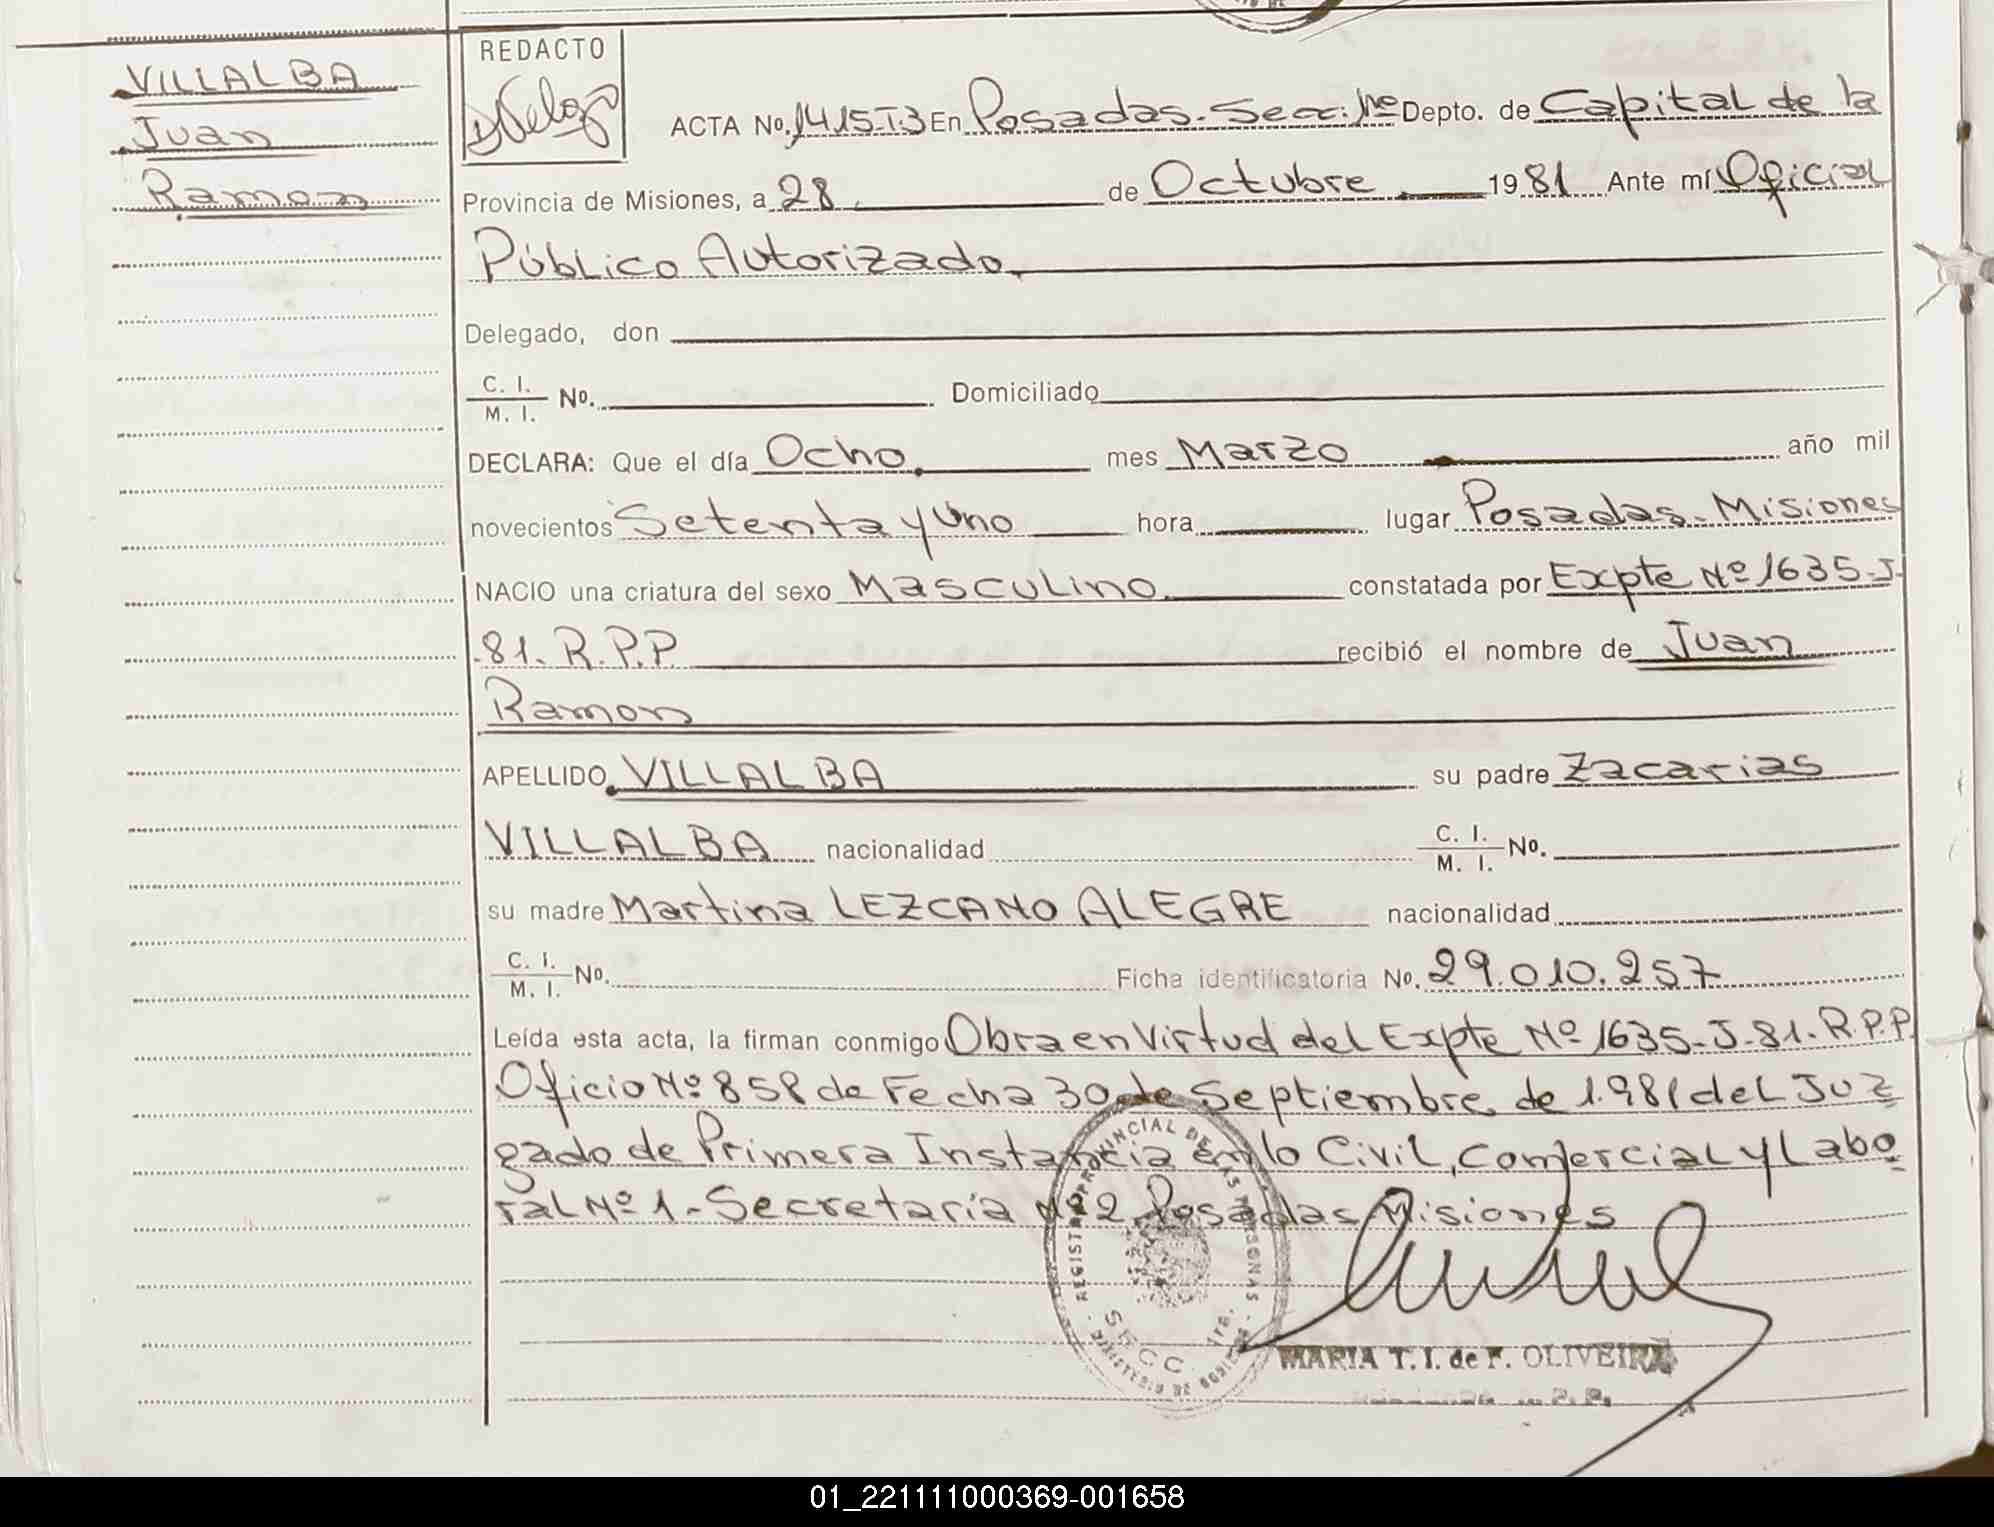 VILLALBA
Juan
Ramon
REDACTO
ACTA No. 1415-T-3 En Posadas. Secc: 1ra Depto. de Capital de la
Provincia de Misiones, a 28 de Octubre 1981 Ante mí Oficial
Público Autorizado
Delegado, don
C. I.
M. I. No. Domiciliado
DECLARA: Que el día Ocho mes Marzo año mil
novecientos Setenta y Uno hora lugar Posadas - Misiones
NACIO una criatura del sexo Masculino constatada por Expte Nº 1635-J-
81. R.P.P recibió el nombre de Juan
Ramon
APELLIDO VILLALBA su padre Zacarias
VILLALBA nacionalidad C. I.
M. I. No.
su madre Martina LEZCANO ALEGRE nacionalidad
C. I.
M. I. No. Ficha identificatoria No. 29.010.257
Leída esta acta, la firman conmigo Obra en Virtud del Expte Nº 1635-J-81. R.P.P.
Oficio Nº 858 de Fecha 30 de Septiembre de 1.981 del Juz
gado de Primera Instancia en lo Civil, Comercial y Labo
ral Nº 1. - Secretaría Nº 2 Posadas Misiones
REGISTRO PROVINCIAL DE LAS PERSONAS
SECC. 1ra.
MARIA T. I. de F. OLIVEIRA
01_221111000369-001658